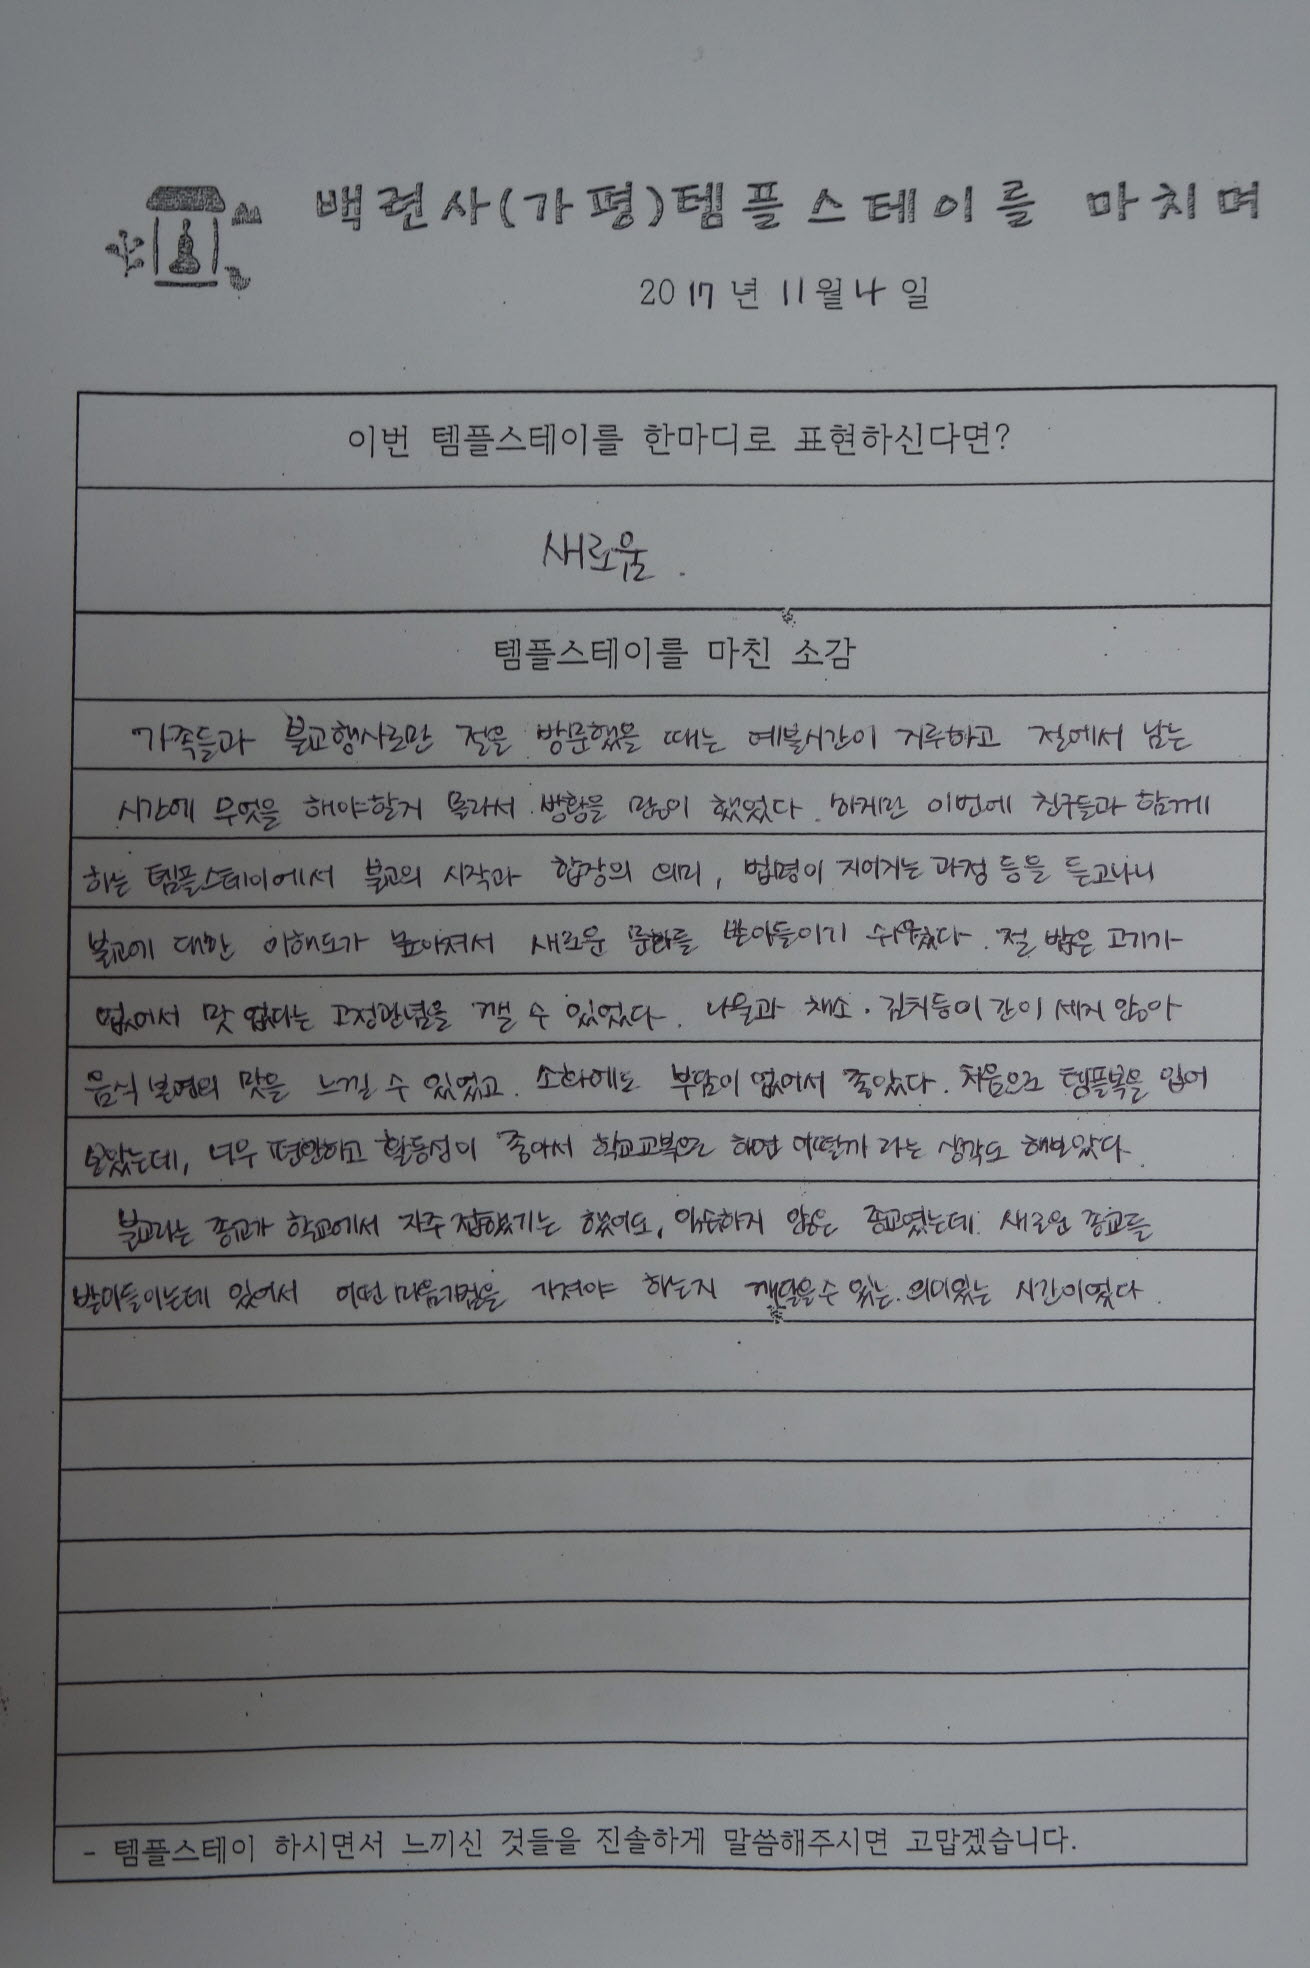 백련사(가평)템플스테이를 마치며
2017년 11월 4일
이번 템플스테이를 한마디로 표현하신다면?
새로움.
템플스테이를 마친 소감
가족들과 불교행사로만 절을 방문했을 때는 예불시간이 지루하고 절에서 남는
시간에 무엇을 해야할지 몰라서 방황을 많이 했었다. 하지만 이번에 친구들과 함께
하는 템플스테이에서 불교의 시작과 합장의 의미, 법명이 지어지는 과정 등을 듣고나니
불교에 대한 이해도가 높아져서 새로운 문화를 받아들이기 쉬웠다. 절 밥은 고기가
없어서 맛 없다는 고정관념을 깰 수 있었다. 나물과 채소·김치등이 간이 세지 않아
음식 본연의 맛을 느낄 수 있었고, 소화에도 부담이 없어서 좋았다. 처음으로 템플복을 입어
보았는데, 너무 편안하고 활동성이 좋아서 학교교복으로 하면 어떨까 라는 생각도 해보았다.
불교라는 종교가 학교에서 자주 접했기는 했어도, 익숙하지 않은 종교였는데. 새로운 종교를
받아들이는데 있어서 어떤 마음가짐을 가져야 하는지 깨달을수 있는. 의미있는 시간이였다.
- 템플스테이 하시면서 느끼신 것들을 진솔하게 말씀해주시면 고맙겠습니다.